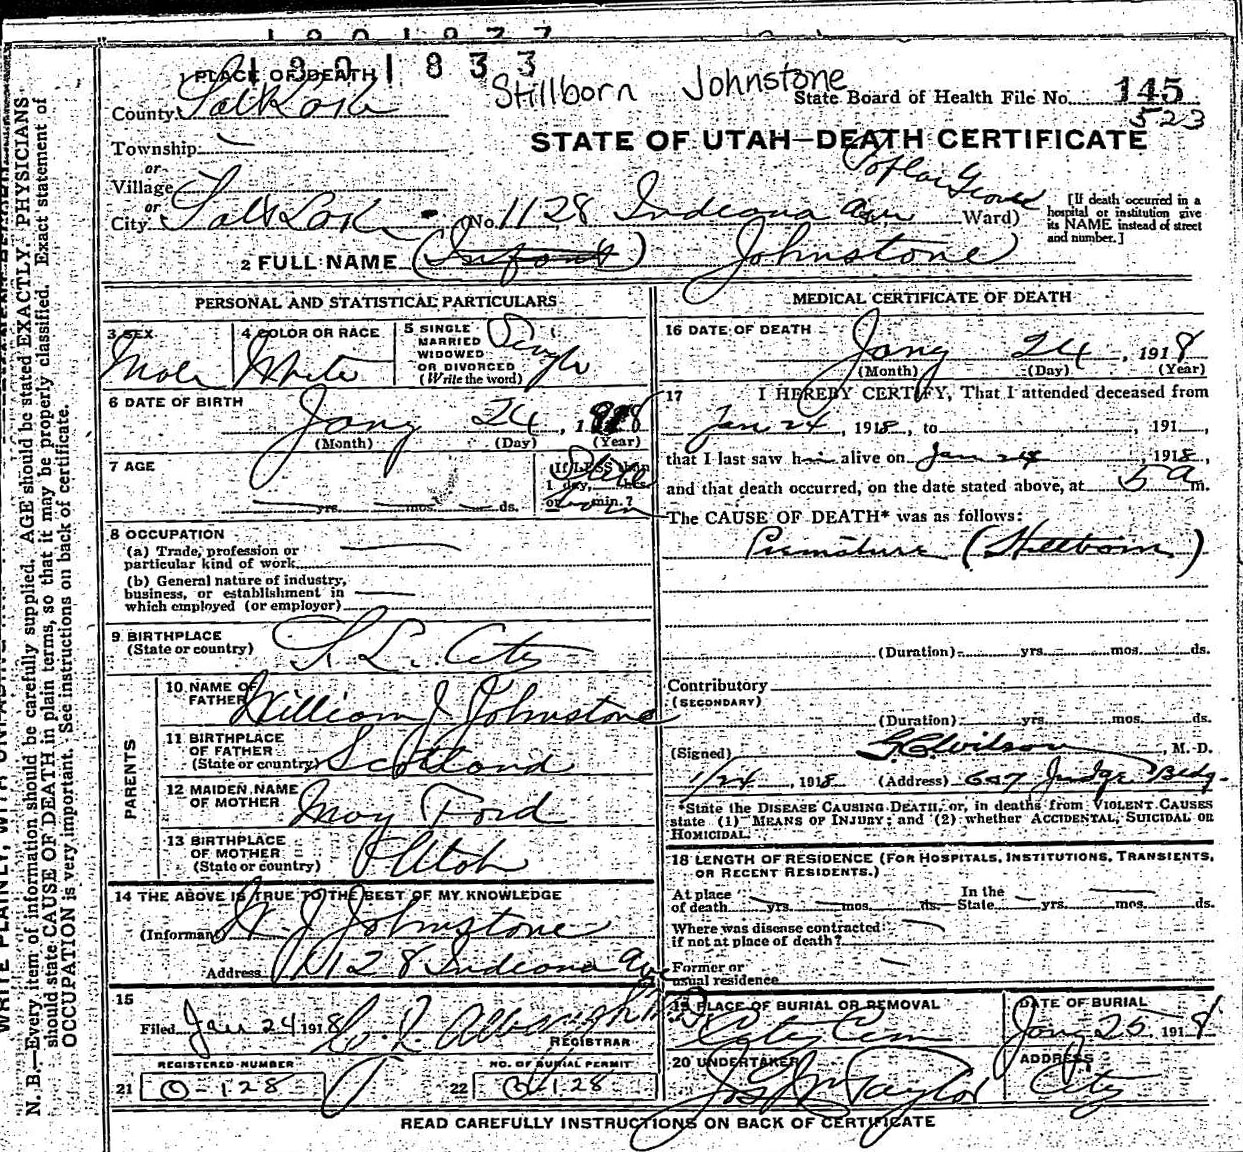 1901833
Stillborn Johnstone
1 PLACE OF DEATH
County Salt Lake
State Board of Health File No. 145
523
Township
STATE OF UTAH—DEATH CERTIFICATE
or
Village
Poplar Grove
or
City Salt Lake (No. 1128 Indiana Ave Ward)
[If death occurred in a
hospital or institution give
its NAME instead of street
and number.]
2 FULL NAME (Infant) Johnstone
PERSONAL AND STATISTICAL PARTICULARS
3 SEX
Male
4 COLOR OR RACE
White
5 SINGLE
MARRIED
WIDOWED
OR DIVORCED
(Write the word)
Single
6 DATE OF BIRTH
Jany 24, 1918
(Month) (Day) (Year)
7 AGE
yrs. mos. ds.
If LESS than
1 day, hrs.
or min.?
Still
born
8 OCCUPATION
(a) Trade, profession or
particular kind of work
(b) General nature of industry,
business, or establishment in
which employed (or employer)
9 BIRTHPLACE
(State or country) S. L. City
PARENTS
10 NAME OF
FATHER William J Johnstone
11 BIRTHPLACE
OF FATHER
(State or country) Scotland
12 MAIDEN NAME
OF MOTHER May Ford
13 BIRTHPLACE
OF MOTHER
(State or country) Utah
14 THE ABOVE IS TRUE TO THE BEST OF MY KNOWLEDGE
(Informant) W. J. Johnstone
Address 1128 Indiana Ave
15
Filed Jan 24 1918
REGISTRAR
REGISTERED NUMBER
21 O-128
NO. OF BURIAL PERMIT
22 O-128
MEDICAL CERTIFICATE OF DEATH
16 DATE OF DEATH
Jany 24, 1918
(Month) (Day) (Year)
17 I HEREBY CERTIFY, That I attended deceased from
Jan 24, 1918, to , 191 ,
that I last saw h alive on Jan 24, 1918,
and that death occurred, on the date stated above, at 5 a m.
The CAUSE OF DEATH* was as follows:
Premature (Stillborn)
(Duration) yrs. mos. ds.
Contributory
(SECONDARY)
(Duration) yrs. mos. ds.
(Signed) Wilson, M. D.
1/24, 1918 (Address) 607 Judge Bldg.
*State the DISEASE CAUSING DEATH, or, in deaths from VIOLENT CAUSES
state (1) MEANS OF INJURY; and (2) whether ACCIDENTAL, SUICIDAL OR
HOMICIDAL.
18 LENGTH OF RESIDENCE (FOR HOSPITALS, INSTITUTIONS, TRANSIENTS,
OR RECENT RESIDENTS.)
At place
of death yrs. mos. ds.
In the
State yrs. mos. ds.
Where was disease contracted
if not at place of death?
Former or
usual residence
19 PLACE OF BURIAL OR REMOVAL
City Cem
DATE OF BURIAL
Jany 25, 1918
20 UNDERTAKER
Jos. Wm Taylor
ADDRESS
City
READ CAREFULLY INSTRUCTIONS ON BACK OF CERTIFICATE
N. B.—Every item of information should be carefully supplied. AGE should be stated EXACTLY. PHYSICIANS
should state CAUSE OF DEATH in plain terms, so that it may be properly classified. Exact statement of
OCCUPATION is very important. See instructions on back of certificate.